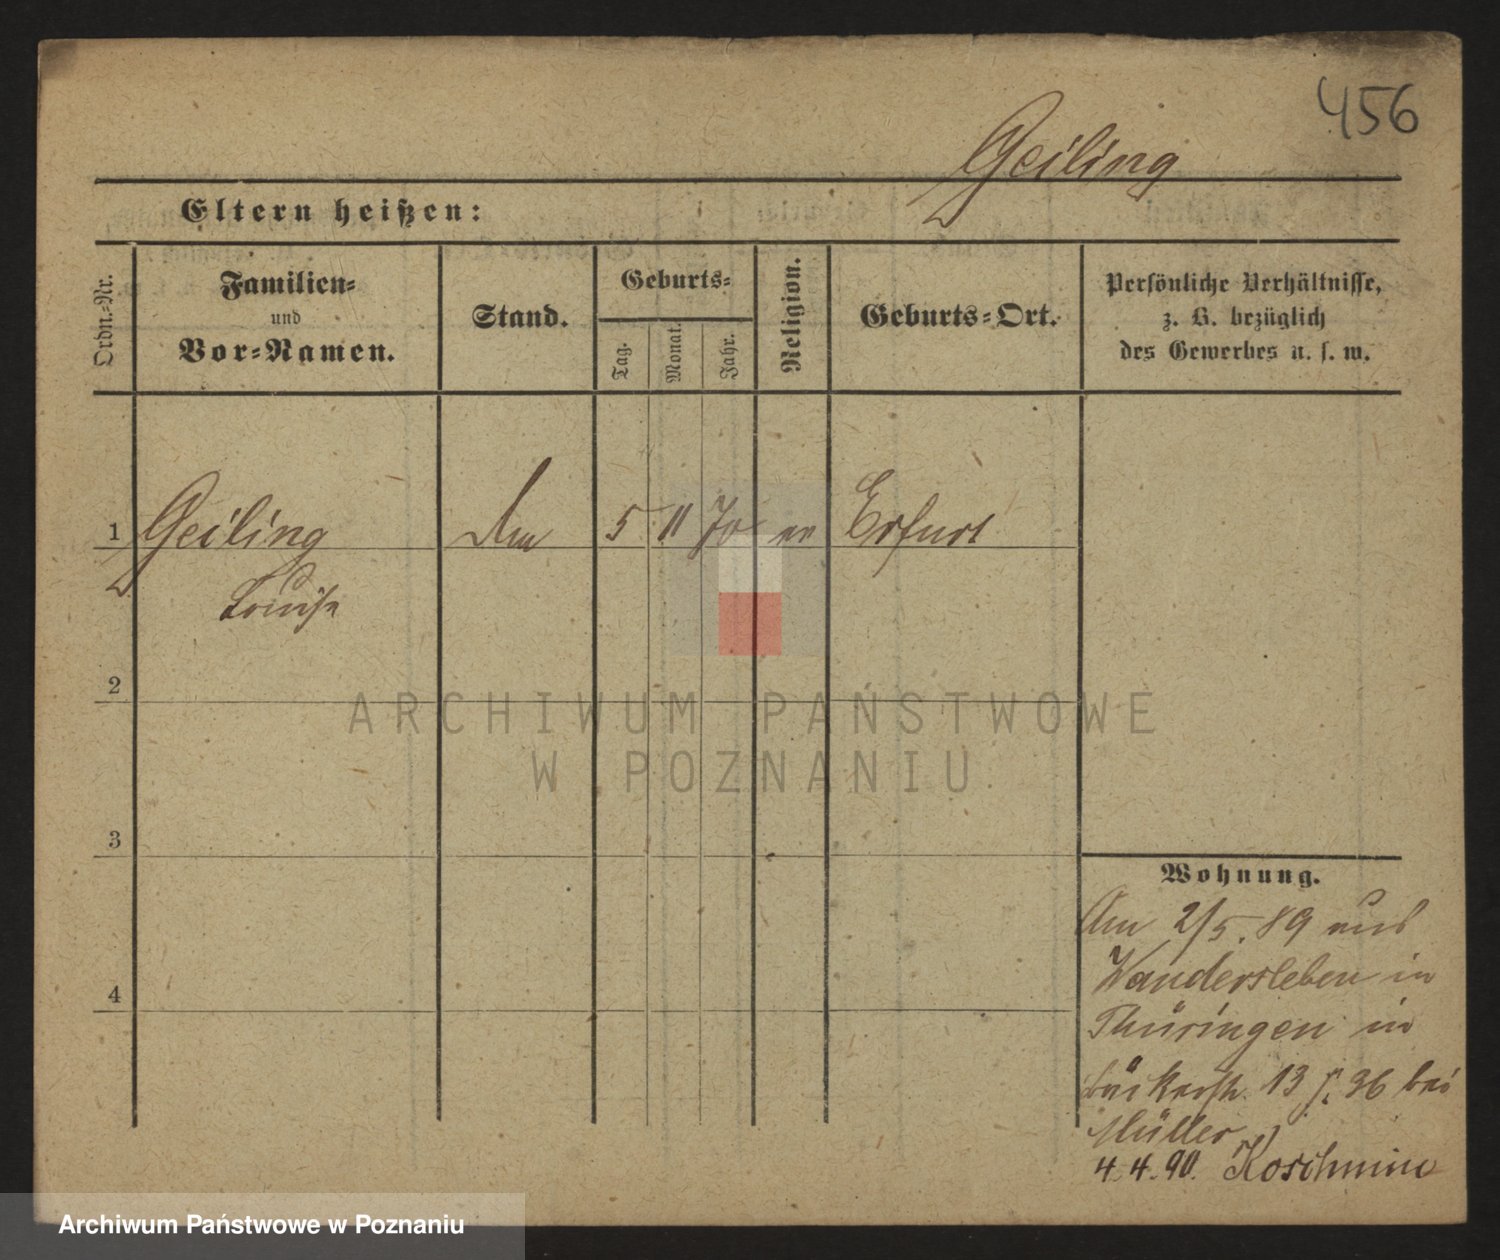 456
Geiling
Eltern heißen:
Ordn.-Nr.
Familien-
und
Vor-Namen.
Stand.
Geburts-
Tag.
Monat.
Jahr.
Religion.
Geburts-Ort.
Persönliche Verhältnisse,
z. B. bezüglich
des Gewerbes u. s. w.
1 Geiling 5 11 70 ev Erfurt
Louise
2
3
4
Wohnung.
Am 2/5. 89 aus
Wandersleben in
Thüringen in
Bäckerstr. 13 f. 36 bei
Müller
4.4.90. Koschmin
ARCHIWUM PAŃSTWOWE
W POZNANIU
Archiwum Państwowe w Poznaniu